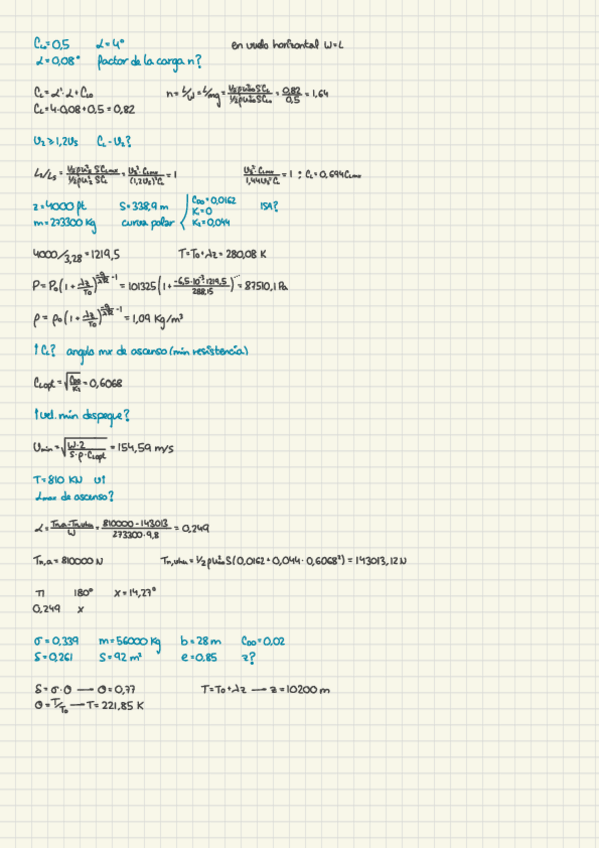 C_L0=0,5 α=4° en vuelo horizontal W=L
α=0,08° factor de la carga n?
C_L=α'·α+C_L0 n=L/W=L/mg=(1/2ρu²∞SC_L)/(1/2ρu²∞SC_L0)=0,82/0,5=1,64
C_L=4·0,08+0,5=0,82
U₂≥1,2U_S C_L-U₂?
L_S/L_S=(1/2ρu²_S SC_Lmax)/(1/2ρu²₂ SC_L)=(U_S²·C_Lmax)/((1,2U_S)²C_L)=1 (U_S²·C_Lmax)/(1,44U_S²C_L)=1 ; C_L=0,694C_Lmax
z=4000 ft S=338,9 m C_D0=0,0162 ISA?
m=273300 Kg curva polar K₁=0
K₂=0,044
4000/3,28=1219,5 T=T₀+λz=280,08 K
P=P₀(1+λz/T₀)=101325(1+(-6,5·10⁻³·1219,5)/288,15)=87510,1 Pa
ρ=ρ₀(1+λz/T₀)=1,09 Kg/m³
↑C_L? angulo mx de ascenso (min resistencia)
C_Lopt=√(C_D0/K₂)=0,6068
↑vel. min despegue?
U_min=√(W·2/(S·ρ·C_Lopt))=154,59 m/s
T=810 KN u↑
α_max de ascenso?
α=/W=(810000-143013)/(273300·9,8)=0,249
T_n,a=810000 N =1/2ρu²∞S(0,0162+0,044·0,6068²)=143013,12N
π 180° x=14,27°
0,249 x
σ=0,339 m=56000 Kg b=28m C_D0=0,02
δ=0,261 S=92 m² e=0.85 z?
δ=σ·θ → θ=0,77 T=T₀+λz → z=10200 m
θ=T/T₀ → T=221,85 K